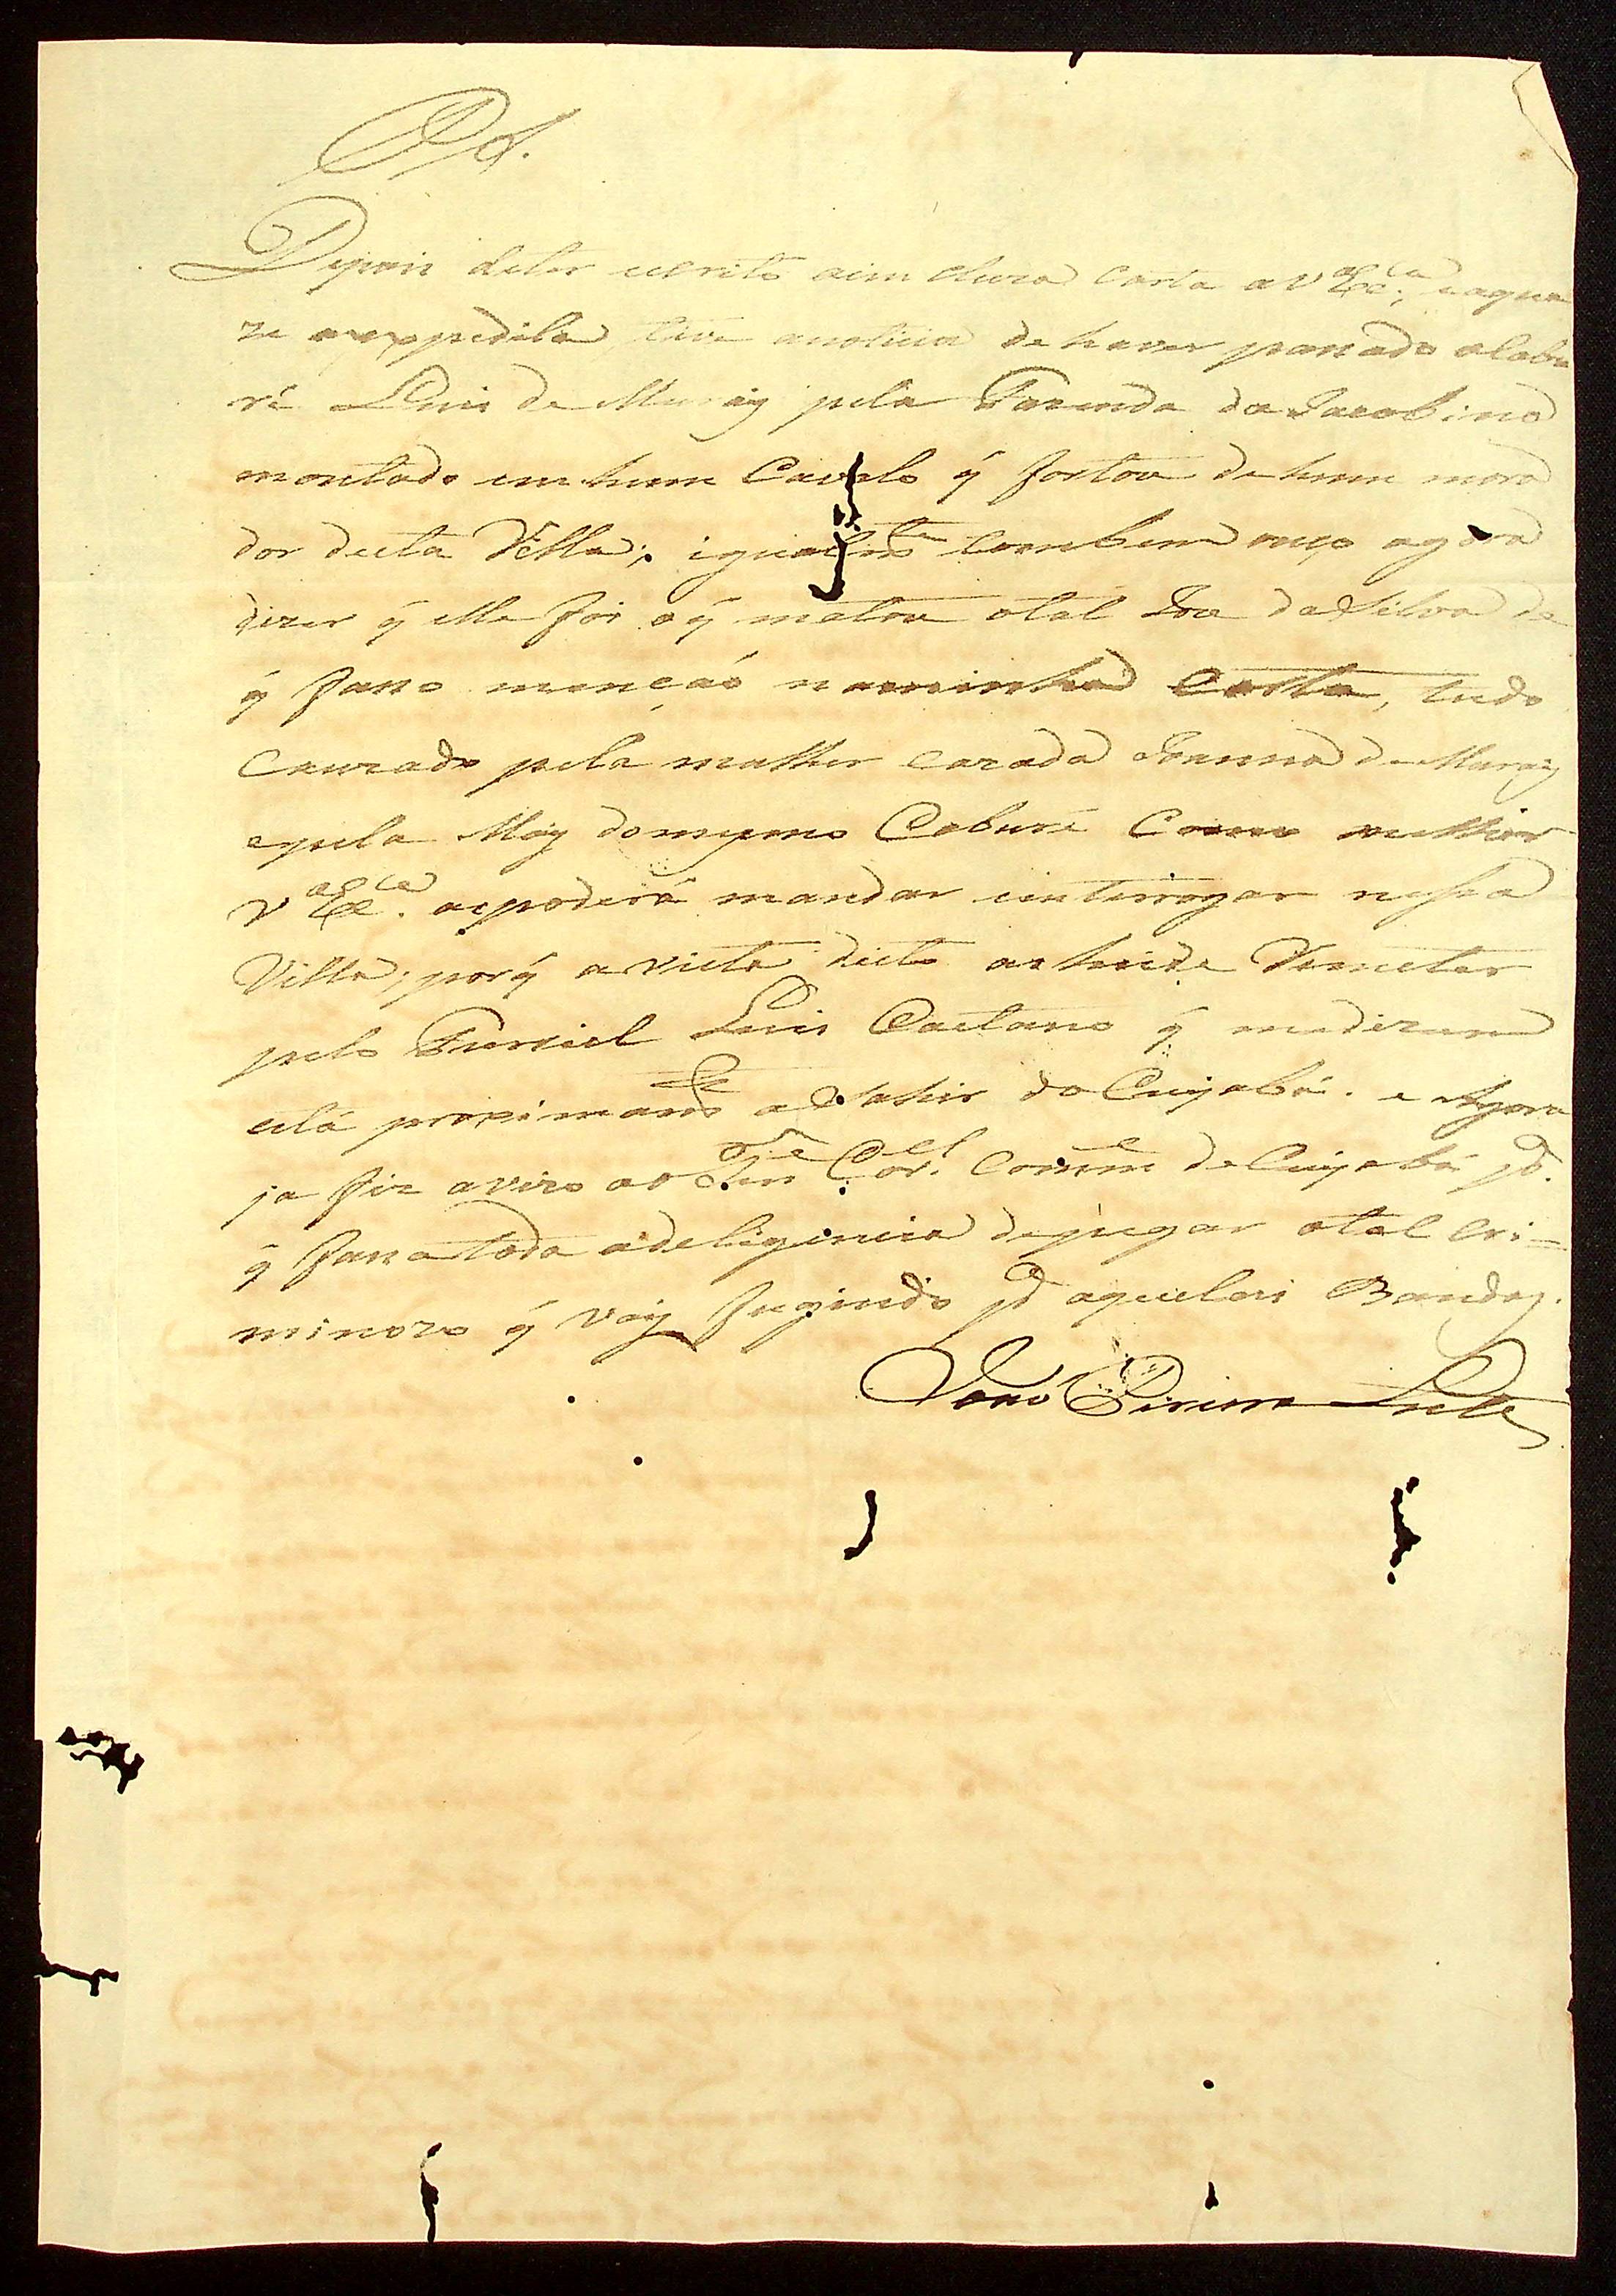 P.S.
Depois deter escrito aimcluza Carta a V Ex.ca, eaqua
ze a expedila tive anoticia de haver passado oCabu
ré Luis de Moraiz pela Fazenda da Jacobina
montado em hum Cavalo q̃ fortou de hum mora
dor desta Villa; igualmte tambem ouço agora
dizer q̃ elle foi o q̃ matou otal Joze da Silva de
q̃ fasso mençáo naminha Carta, tudo
cauzado pela mulher cazada Joanna de Moraiz
epela Máy domesmo Caburé Como milhor
V Ex.ca apoderá mandar emterrogar nessa
Villa; porq̃ avista disto as heide Remeter
pelo Furriel Luis Caetano q̃ medizem
está proximamte a Sahir do Cuyabá. e Agora
ja fiz avizo ao Ten.e Cor.el Comme de Cuyabá pa.
q̃ fassa toda adeligencia depegar otal Cri-
minozo q̃ Vay fugindo pa aquelas Bandas.
Joaó Pereira Leite